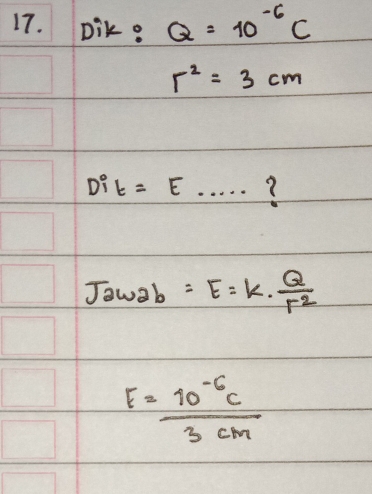 17. Dik : Q = 10⁻⁶ C
r² = 3 cm
Dit = E ..... ?
Jawab = E = k . Q/r²
E = 10⁻⁶ C / 3 cm